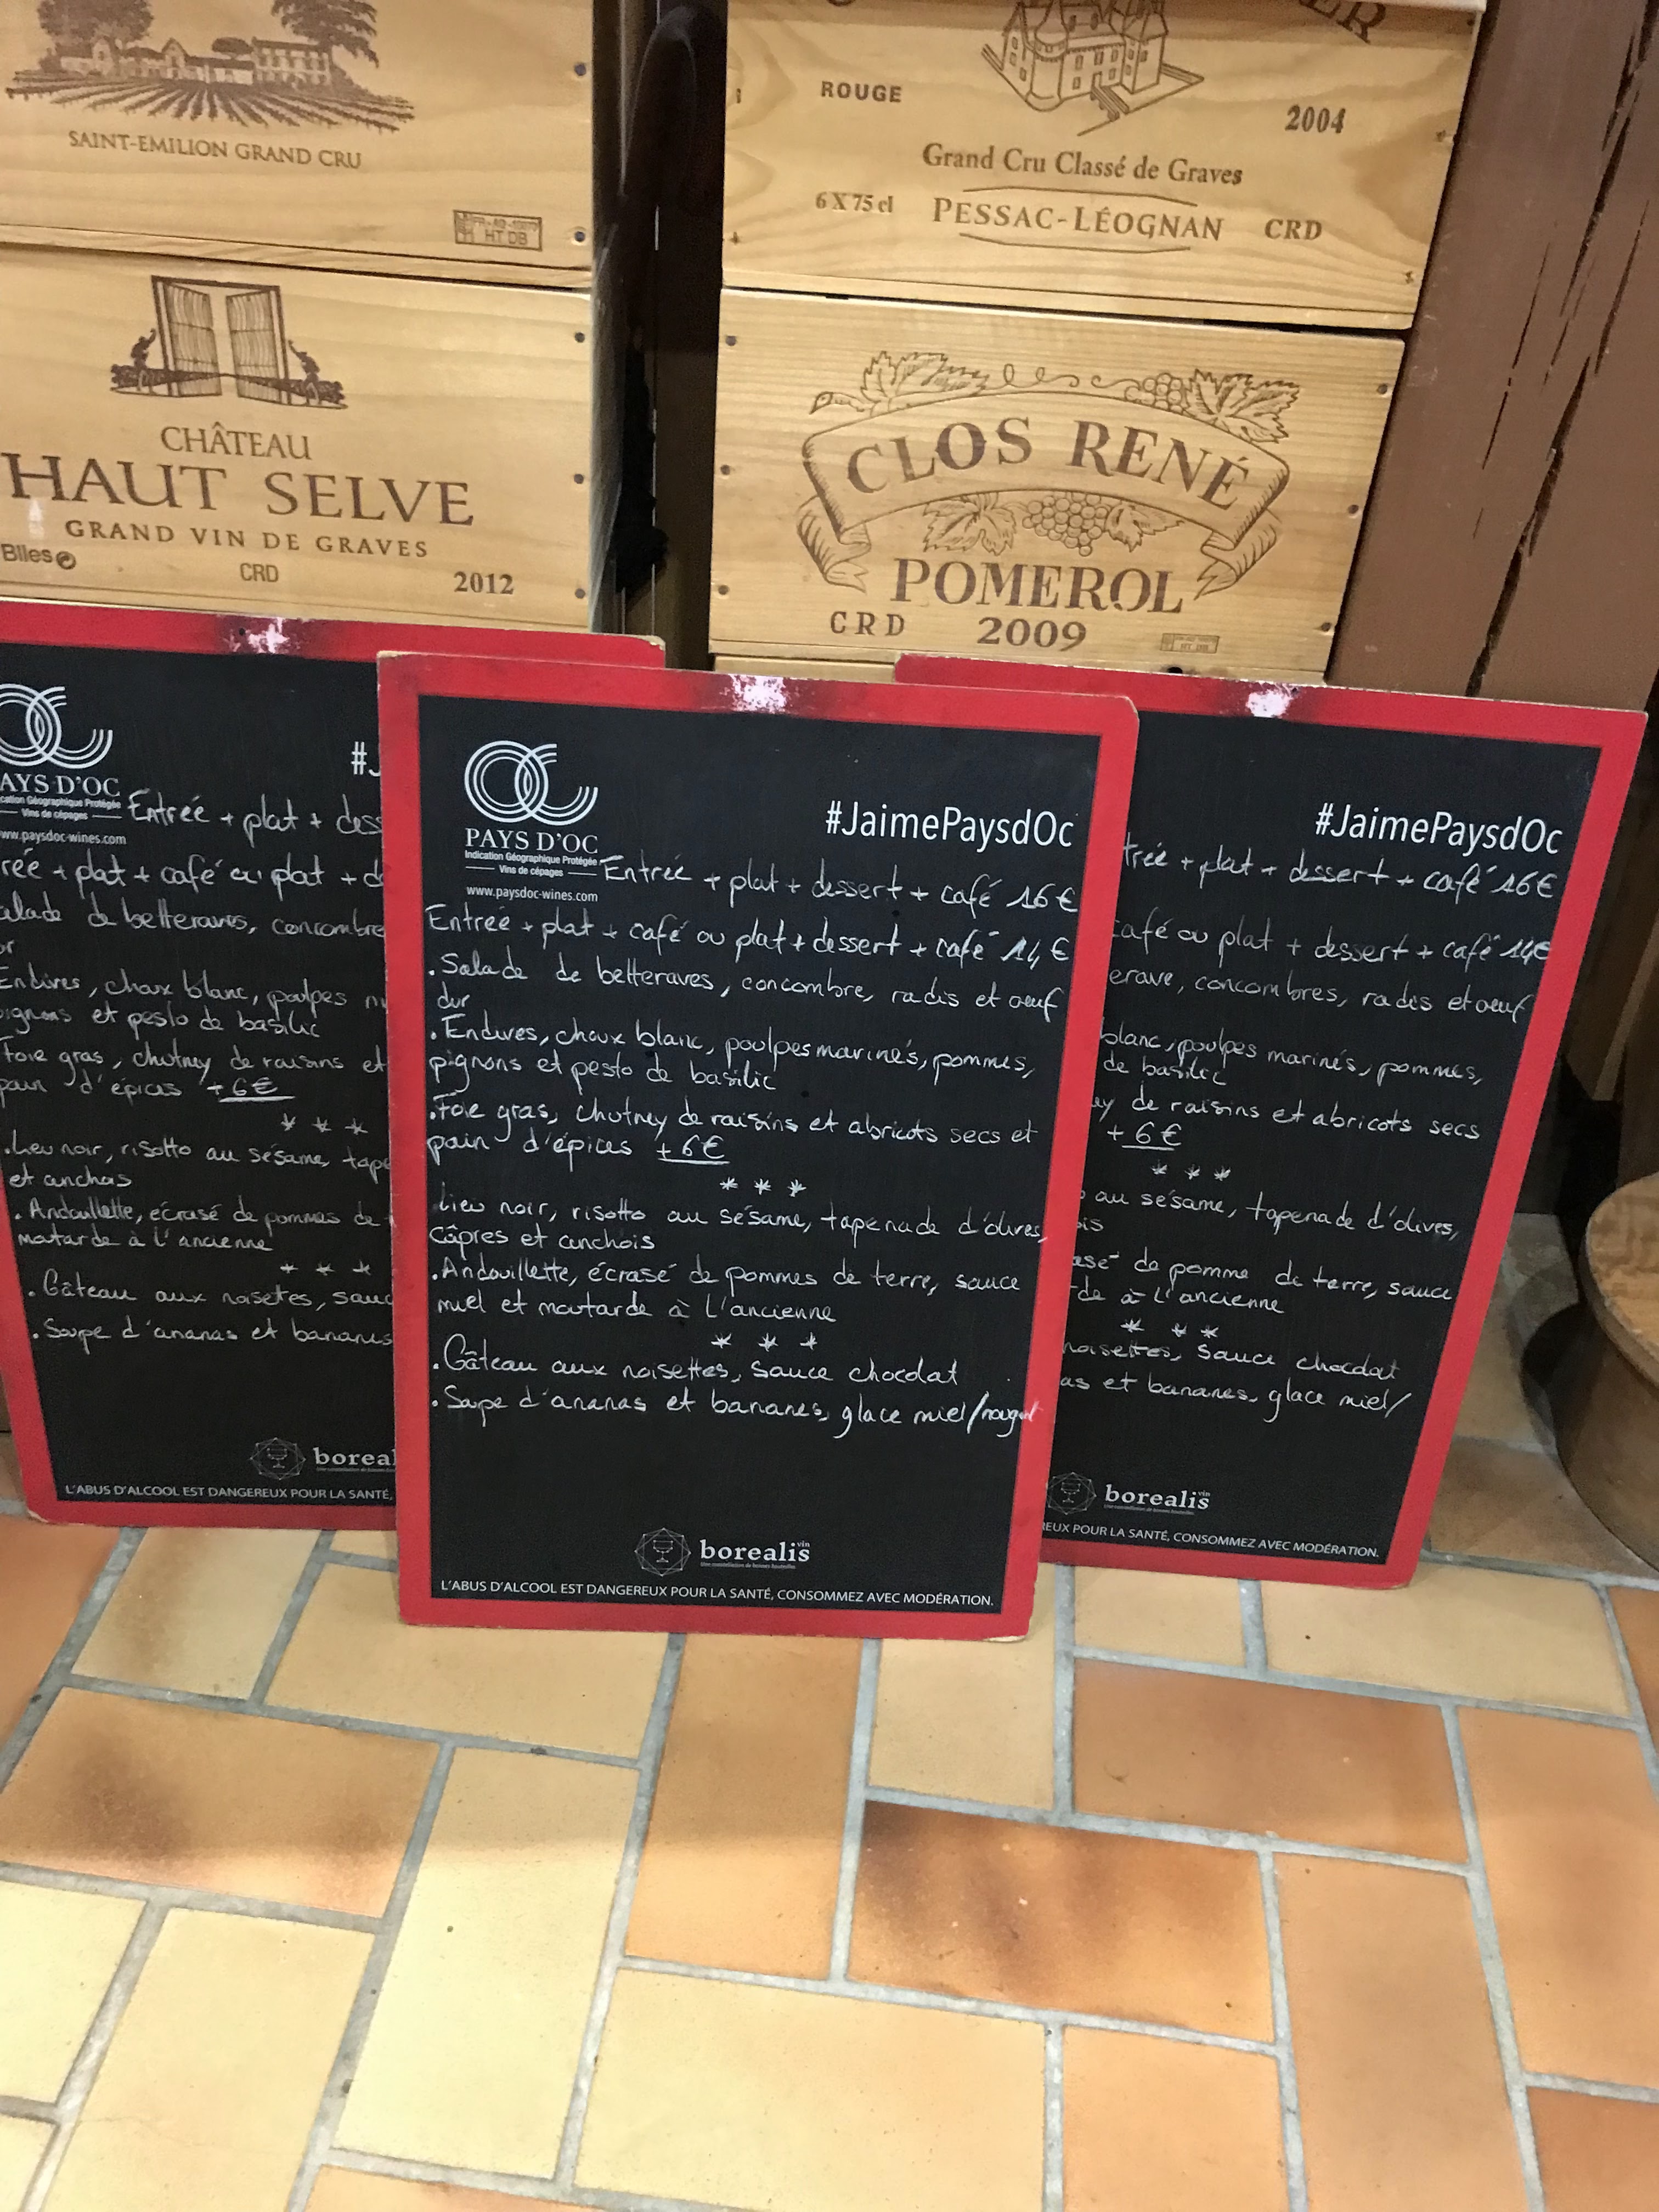 SAINT-EMILION GRAND CRU
HT DB
CHÂTEAU
HAUT SELVE
GRAND VIN DE GRAVES
Blles
CRD
2012
ROUGE
2004
Grand Cru Classé de Graves
6 X 75 cl
PESSAC-LÉOGNAN
CRD
CLOS RENÉ
POMEROL
CRD
2009
AYS D'OC
cation Géographique Protégée
Vins de cépages
ww.paysdoc-wines.com
#J
Entrée + plat + dess
rée + plat + café ou plat + d
alade de betteraves, concombre
ur
Endives, choux blanc, poulpes m
ignons et pesto de basilic
Foie gras, chutney de raisins et
pain d'épices +6€
* * *
.Lieu noir, risotto au sésame, tape
et anchois
. Andouillette, écrasé de pommes de
moutarde à l'ancienne
* * *
. Gâteau aux noisettes, sauc
. Soupe d'ananas et bananes
boreal
L'ABUS D'ALCOOL EST DANGEREUX POUR LA SANTÉ,
PAYS D'OC
Indication Géographique Protégée
Vins de cépages
www.paysdoc-wines.com
#JaimePaysdOc
Entrée + plat + dessert + café 16€
Entrée + plat + café ou plat + dessert + café 14€
. Salade de betteraves, concombre, radis et œuf
dur
. Endives, choux blanc, poulpes marinés, pommes,
pignons et pesto de basilic
. Foie gras, chutney de raisins et abricots secs et
pain d'épices +6€
* * *
Lieu noir, risotto au sésame, tapenade d'olives,
câpres et anchois
. Andouillette, écrasé de pommes de terre, sauce
miel et moutarde à l'ancienne
* * *
. Gâteau aux noisettes, sauce chocolat
. Soupe d'ananas et bananes, glace miel/nougat
borealis
vin
Une constellation de bonnes bouteilles
L'ABUS D'ALCOOL EST DANGEREUX POUR LA SANTÉ, CONSOMMEZ AVEC MODÉRATION.
#JaimePaysdOc
trée + plat + dessert + café 16€
café ou plat + dessert + café 14€
erave, concombres, radis et œuf
blanc, poulpes marinés, pommes,
de basilic
ey de raisins et abricots secs
+ 6€
* * *
au sésame, tapenade d'olives,
is
asé de pomme de terre, sauce
de à l'ancienne
* * *
noisettes, sauce chocolat
as et bananes, glace miel/
borealis
vin
EUX POUR LA SANTÉ, CONSOMMEZ AVEC MODÉRATION.